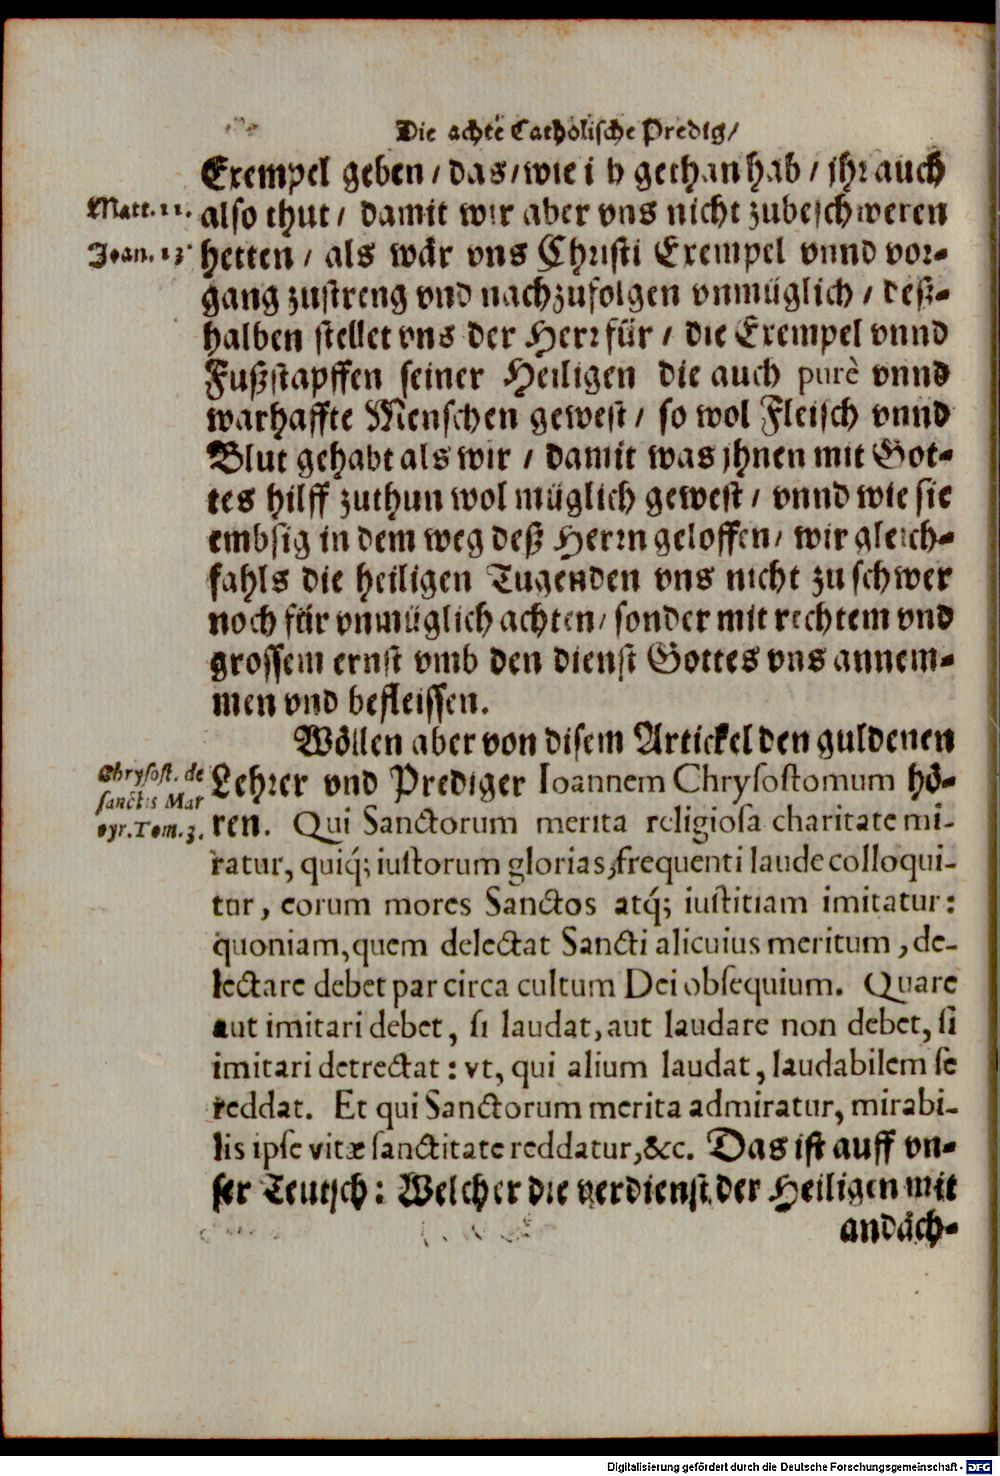 Die achte Catholische Predig/
Exempel geben / das / wie ich gethan hab / jhr auch
Matt. 11. also thut / damit wir aber vns nicht zubeschweren
Joan. 13 hetten / als wär vns Christi Exempel vnnd vor-
gang zustreng vnd nachzufolgen vnmüglich / deß-
halben stellet vns der Herr für / die Exempel vnnd
Fußstapffen seiner Heiligen die auch purè vnnd
warhaffte Menschen gewest / so wol Fleisch vnnd
Blut gehabt als wir / damit was jhnen mit Got-
tes hilff zuthun wol müglich gewest / vnnd wie sie
embsig in dem weg deß Herrn geloffen / wir gleich-
fahls die heiligen Tugenden vns nicht zu schwer
noch für vnmüglich achten / sonder mit rechtem vnd
grossem ernst vmb den dienst Gottes vns annem-
men vnd befleissen.
Wöllen aber von disem Artickel den guldenen
Chrysost. de Lehrer vnd Prediger Ioannem Chrysostomum hö-
sanctis Mar
tyr. Tom. 3. ren. Qui Sanctorum merita religiosa charitate mi-
ratur, quiq́; iustorum glorias, frequenti laude colloqui-
tur, eorum mores Sanctos atq́; iustitiam imitatur:
quoniam, quem delectat Sancti alicuius meritum, de-
lectare debet par circa cultum Dei obsequium. Quare
aut imitari debet, si laudat, aut laudare non debet, si
imitari detrectat: vt, qui alium laudat, laudabilem se
reddat. Et qui Sanctorum merita admiratur, mirabi-
lis ipse vitæ sanctitate reddatur, &c. Das ist auff vn-
ser Teutsch: Welcher die verdienst der Heiligen mit
andäch-
Digitalisierung gefördert durch die Deutsche Forschungsgemeinschaft - DFG